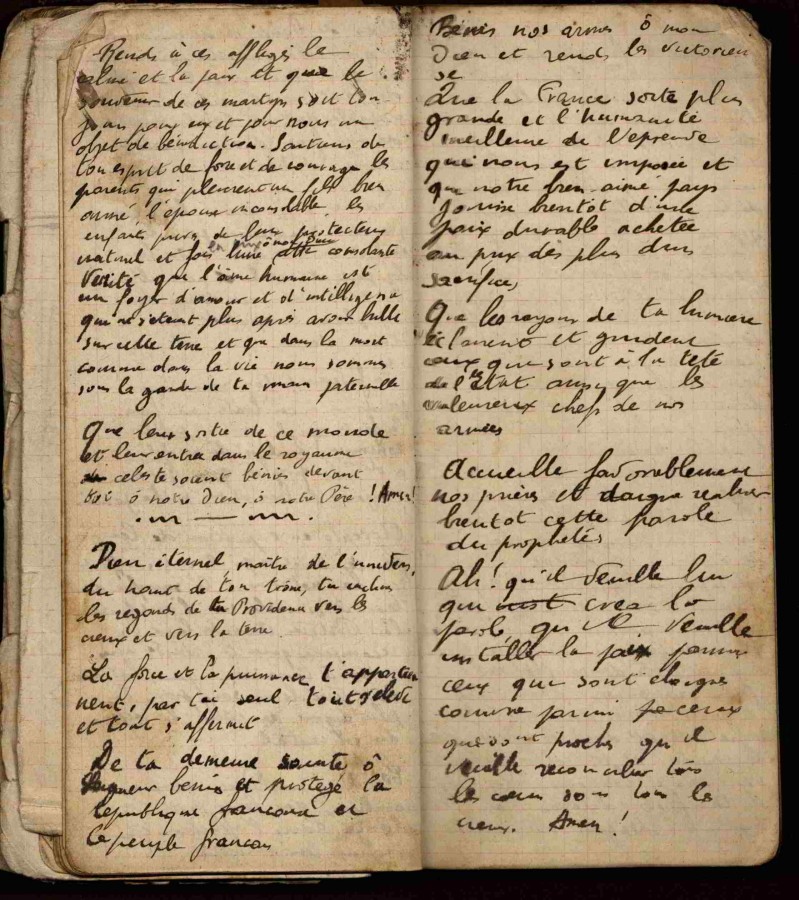 Rends à ces affligés le
calme et la paix et que le
souvenir de ces martyrs soit tou-
jours pour eux et pour nous un
objet de bénédiction. Soutiens de
ton esprit de force et de courage les
parents qui pleurent un fils bien
aimé, l'épouse inconsolable, les
enfants privés de leur protecteur
naturel et fais luire cette consolante
Vérité que l'âme humaine est
un foyer d'amour et d'intelligence
qui ne s'éteint plus après avoir brillé
sur cette terre et que dans la mort
comme dans la vie nous sommes
sous la garde de ta main paternelle
Que leur sortie de ce monde
et leur entrée dans le royaume
céleste soient bénies devant
toi ô notre Dieu, ô notre Père ! Amen!
Dieu éternel, maître de l'univers,
du haut de ton trône, tu inclines
les regards de ta Providence vers les
cieux et vers la terre.
La force et la puissance t'appartien
nent, par toi seul tout s'élève
et tout s'affermit
De ta demeure sainte ô
Seigneur bénis et protège la
République francaise et
le peuple francais
Bénis nos armes ô mon
Dieu et rends les victorieu
se
Que la France sorte plus
grande et l'humanité
meilleure de l'epreuve
qui nous est imposée et
que notre bien-aimé pays
jouisse bientot d'une
paix durable achetée
au prix des plus durs
sacrifices
Que les rayons de ta lumiere
éclairent et guident
ceux qui sont à la tete
de l'Etat ainsi que les
valeureux chefs de nos
armées
Accueille favorablement
nos prières et daigne realiser
bientot cette parole
du prophetes
Ah! qu'il veuille lui
qui crea la
parole, qu'il veuille
installer la paix parmi
ceux qui sont eloignes
comme parmi ceux
qui sont proches qu'il
veuille reconcilier tous
les cœurs sous tous les
cieux. Amen!